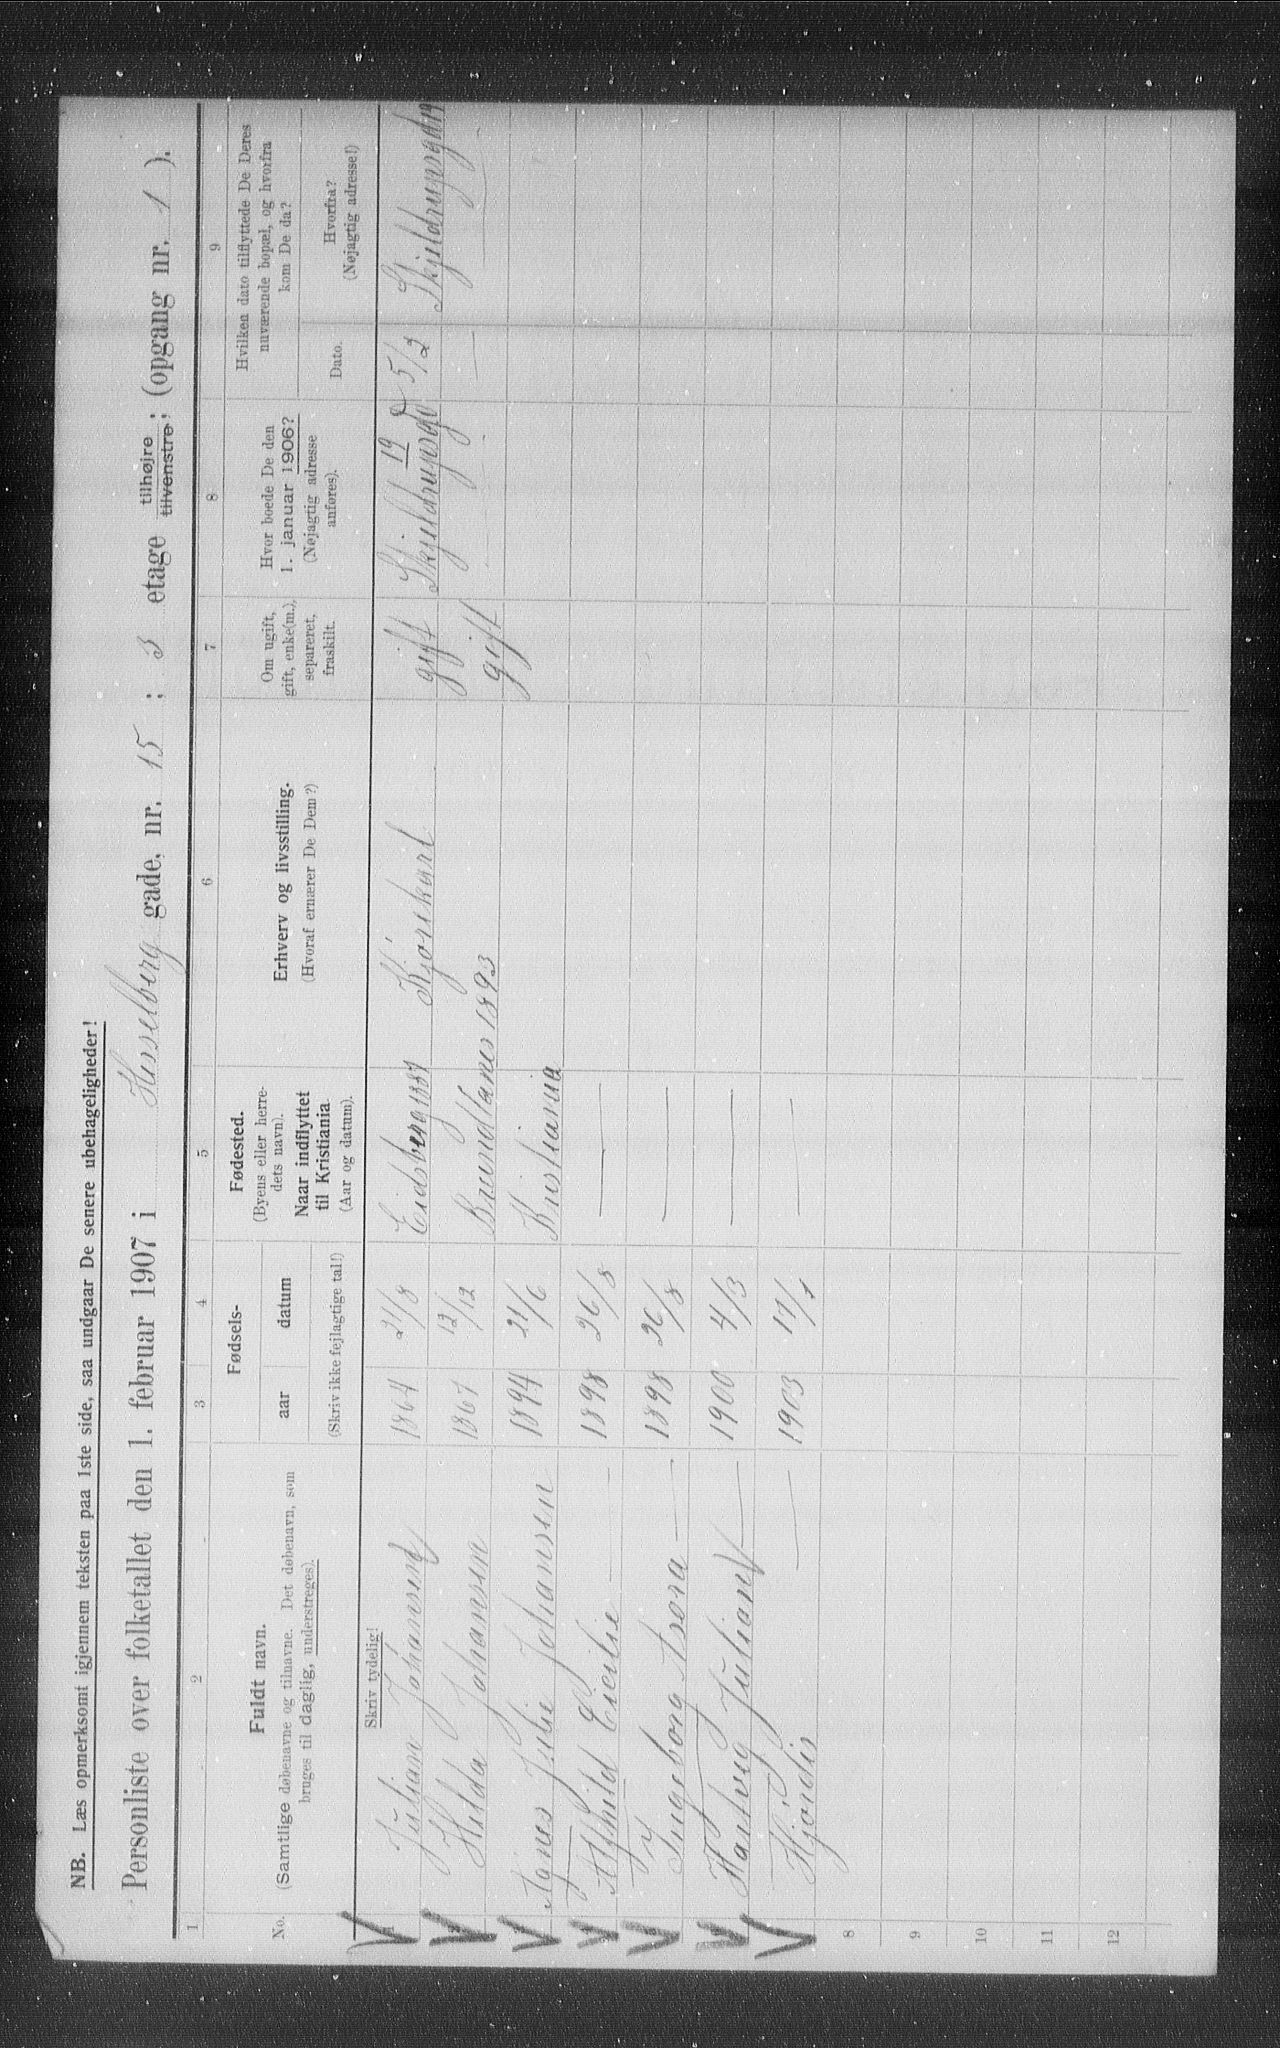 NB. Læs opmerksomt igjennem teksten paa 1ste side, saa undgaar De senere ubehageligheder!
Personliste over folketallet den 1. februar 1907 i Hesselberg gade, nr. 15; 3 etage tilhøjre; tilvenstre; (opgang nr. 1).
1 2 3 4 5 6 7 8 9
No.
Fuldt navn.
(Samtlige døbenavne og tilnavne. Det døbenavn, som
bruges til daglig, understreges).
Fødsels-
aar datum
(Skriv ikke fejlagtige tal!)
Fødested.
(Byens eller herre-
dets navn).
Naar indflyttet
til Kristiania
(Aar og datum).
Erhverv og livsstilling.
(Hvoraf ernærer De Dem?)
Om ugift,
gift, enke(m.),
separeret,
fraskilt.
Hvor boede De den
1. januar 1906?
(Nøjagtig adresse
anføres).
Hvilken dato tilflyttede De Deres
nuværende bopæl, og hvorfra
kom De da?
Dato.
Hvorfra?
(Nøjagtig adresse!)
Skriv tydelig!
Julian Johansen 1864 21/8 Eidsberg 1887 Kjørekarl gift Skjeldrupsgd 19 5/2 Skjeldrupsgd 19
Hilda Johansen 1867 12/12 Brundlanes 1893 gift — —
Agnes Julie Johansen 1894 21/6 Kristiania
Alfhild Cicilie — 1898 26/8 —
Ingeborg Asora — 1898 26/8 —
Hartvig Julian — 1900 4/3 —
Hjørdis — 1903 17/1 —
8
9
10
11
12